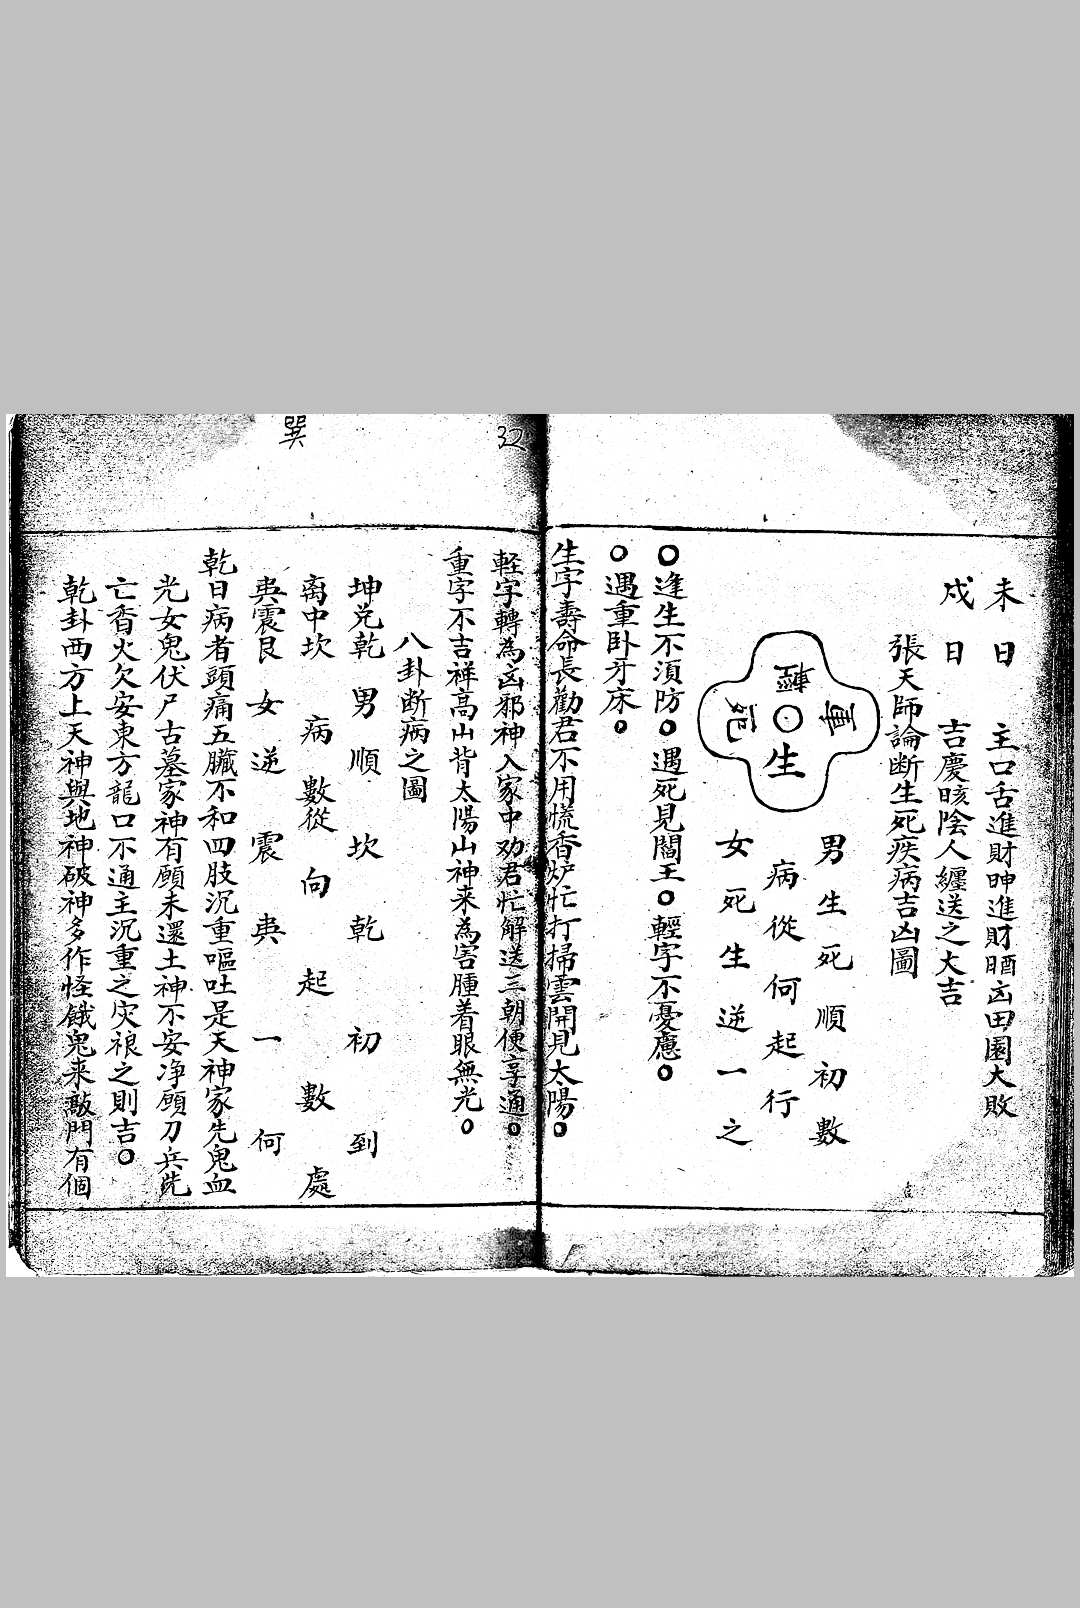 未日　主口舌進財呻進財𣆶凶田園大敗
戍日　吉慶晐陰人纏送之大吉
張天師論断生死疾病吉凶圖
輕
重
死
生
男生死順初數
病從何起行
女死生逆一之
○逢生不須防○遇死見閻王○輕字不憂慮○
○遇重卧牙床○
生字壽命長勸君不用慌香炉忙打掃雲開見太陽○
32
軽字轉為凶邪神入家中劝君忙解送三朝便享通○
重字不吉祥高山背太陽山神来為害腫着眼無光○
八卦断病之圖
坤兑乾男順坎乾初到
离中坎病數從向起數處
巽
㢲震艮女逆震㢲一何
乾日病者頭痛五臟不和四肢沉重嘔吐是天神家先鬼血
光女鬼伏尸古墓家神有願未還土神不安净願刀兵
亡香火欠安東方龍口不通主沉重之灾禳之則吉○
乾卦西方上天神與地神破神多作怪餓鬼来敲門有個